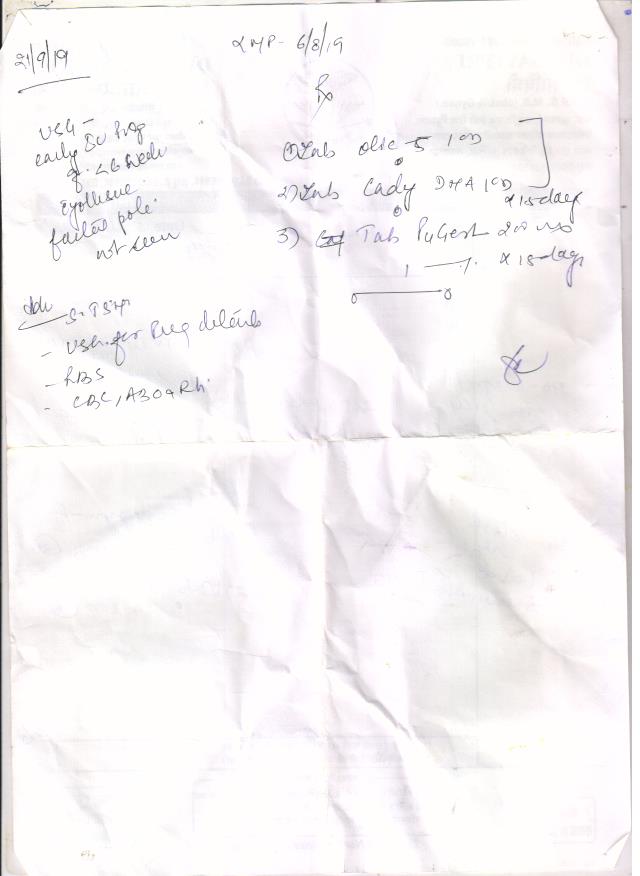 21/9/19
LMP- 6/8/19
Rx
USG-
early IU Preg
of <6 week
failed pole
not seen
1) Tab olic-5 1 OD
2) Tab Cady DHA 1 OD
x 15 days
3) Tab PuGest 200
1 x 15 days
Adv
- USG for Preg details
- RBS
- CBC, ABO & Rh